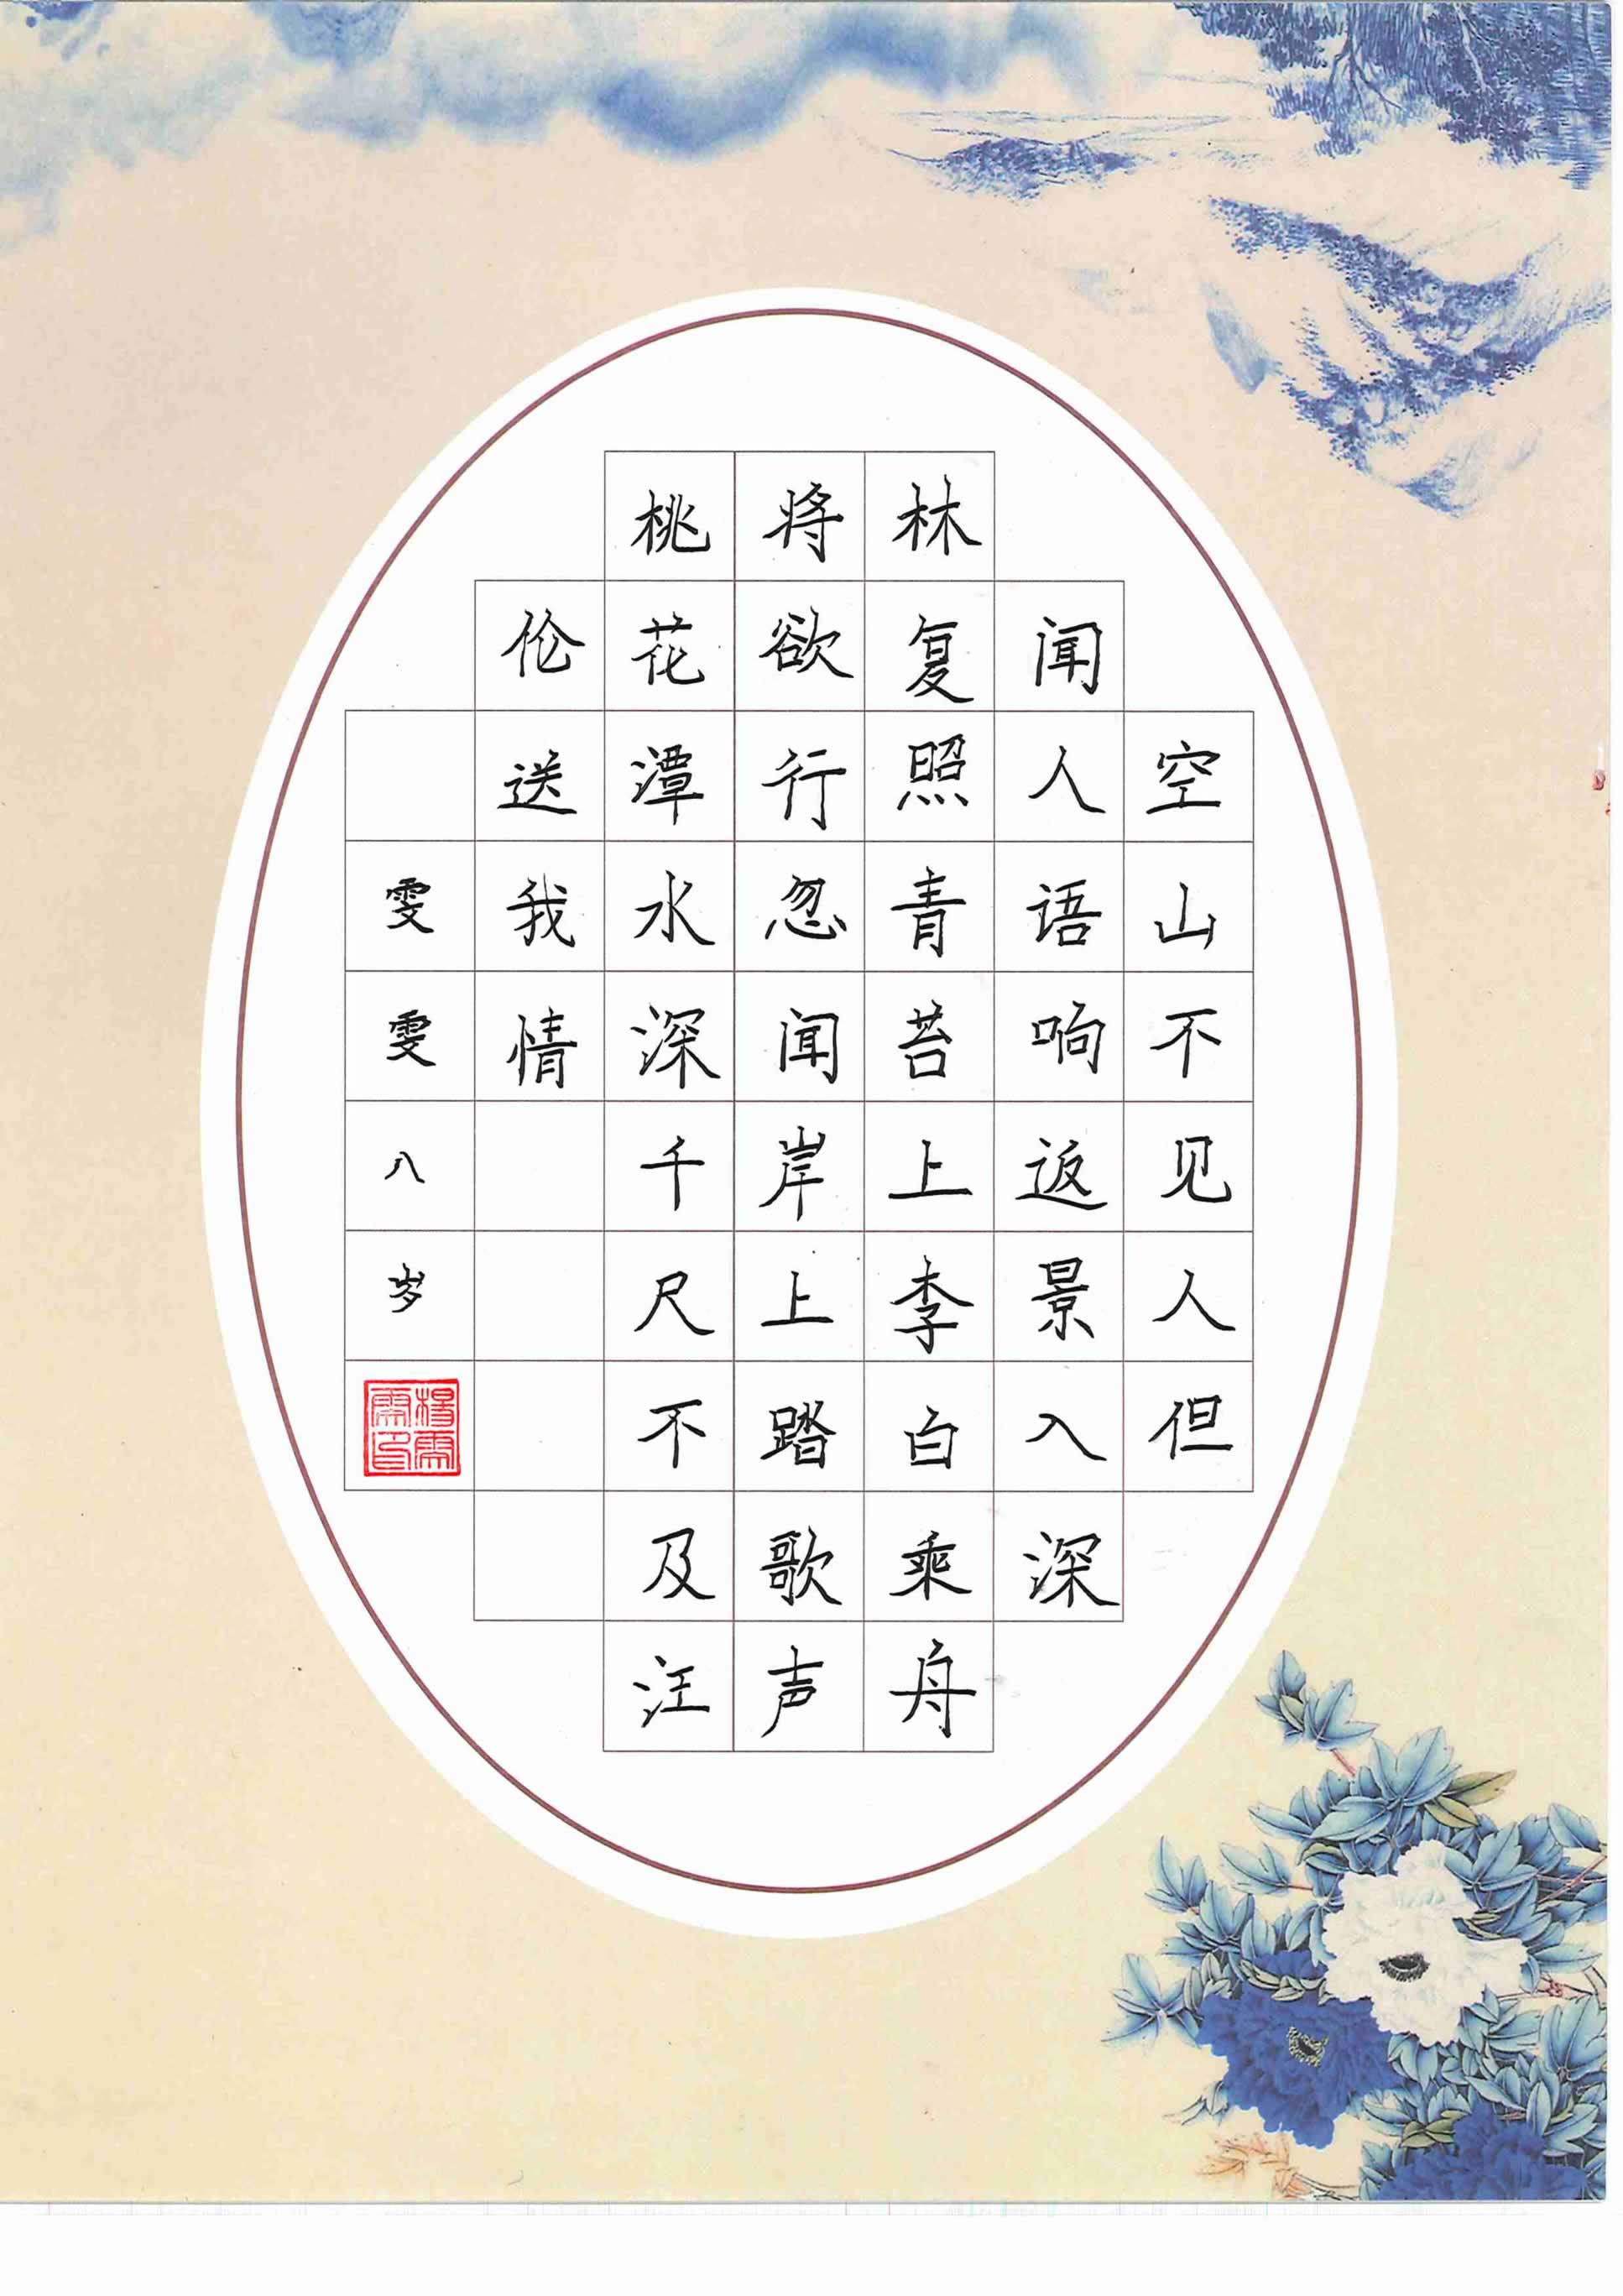 空山不见人但
闻人语响返景入深
林复照青苔上李白乘舟
将欲行忽闻岸上踏歌声
桃花潭水深千尺不及汪
伦送我情
雯雯八岁